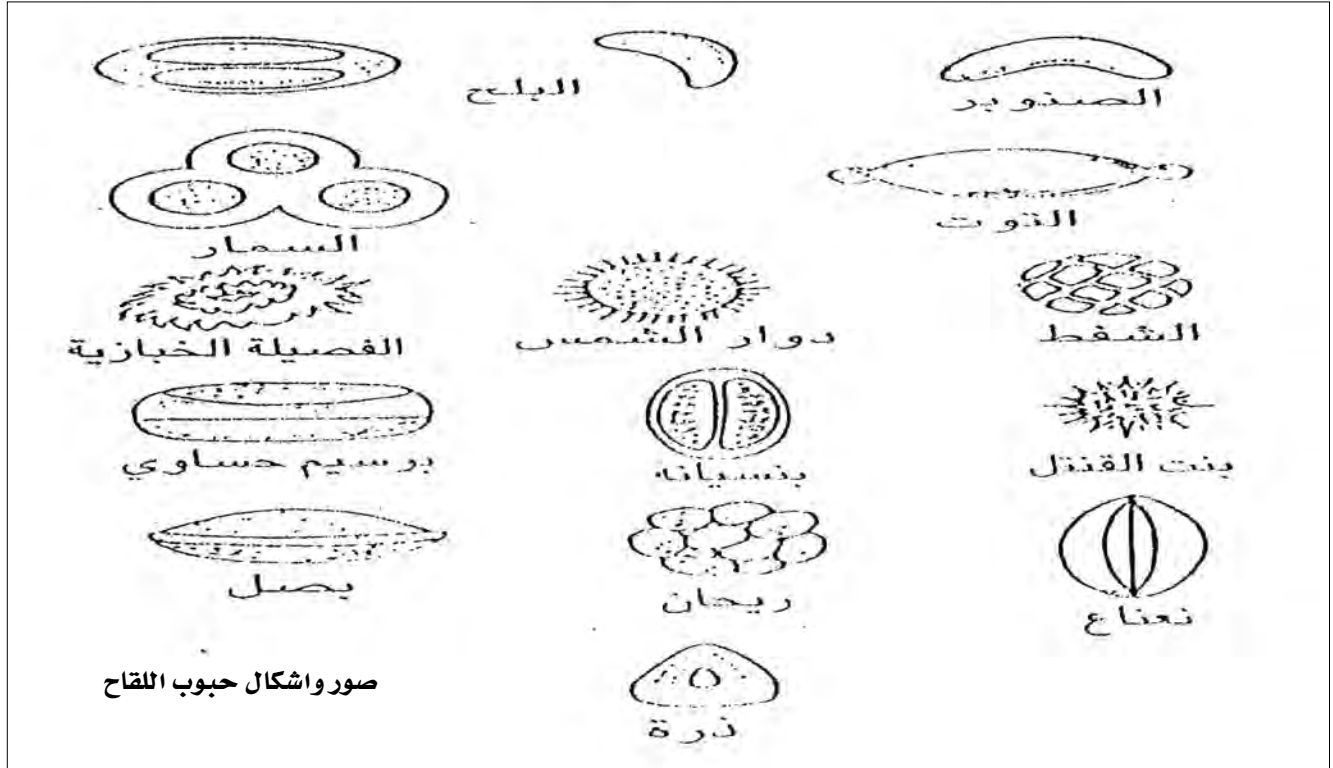 الصنوبر
البلح
التوت
السمار
الشفط
دوار الشمس
الفصيلة الخبازية
بنت القنتل
بنسيانه
برسيم حساوي
نعناع
ريحان
بصل
ذرة
صور واشكال حبوب اللقاح